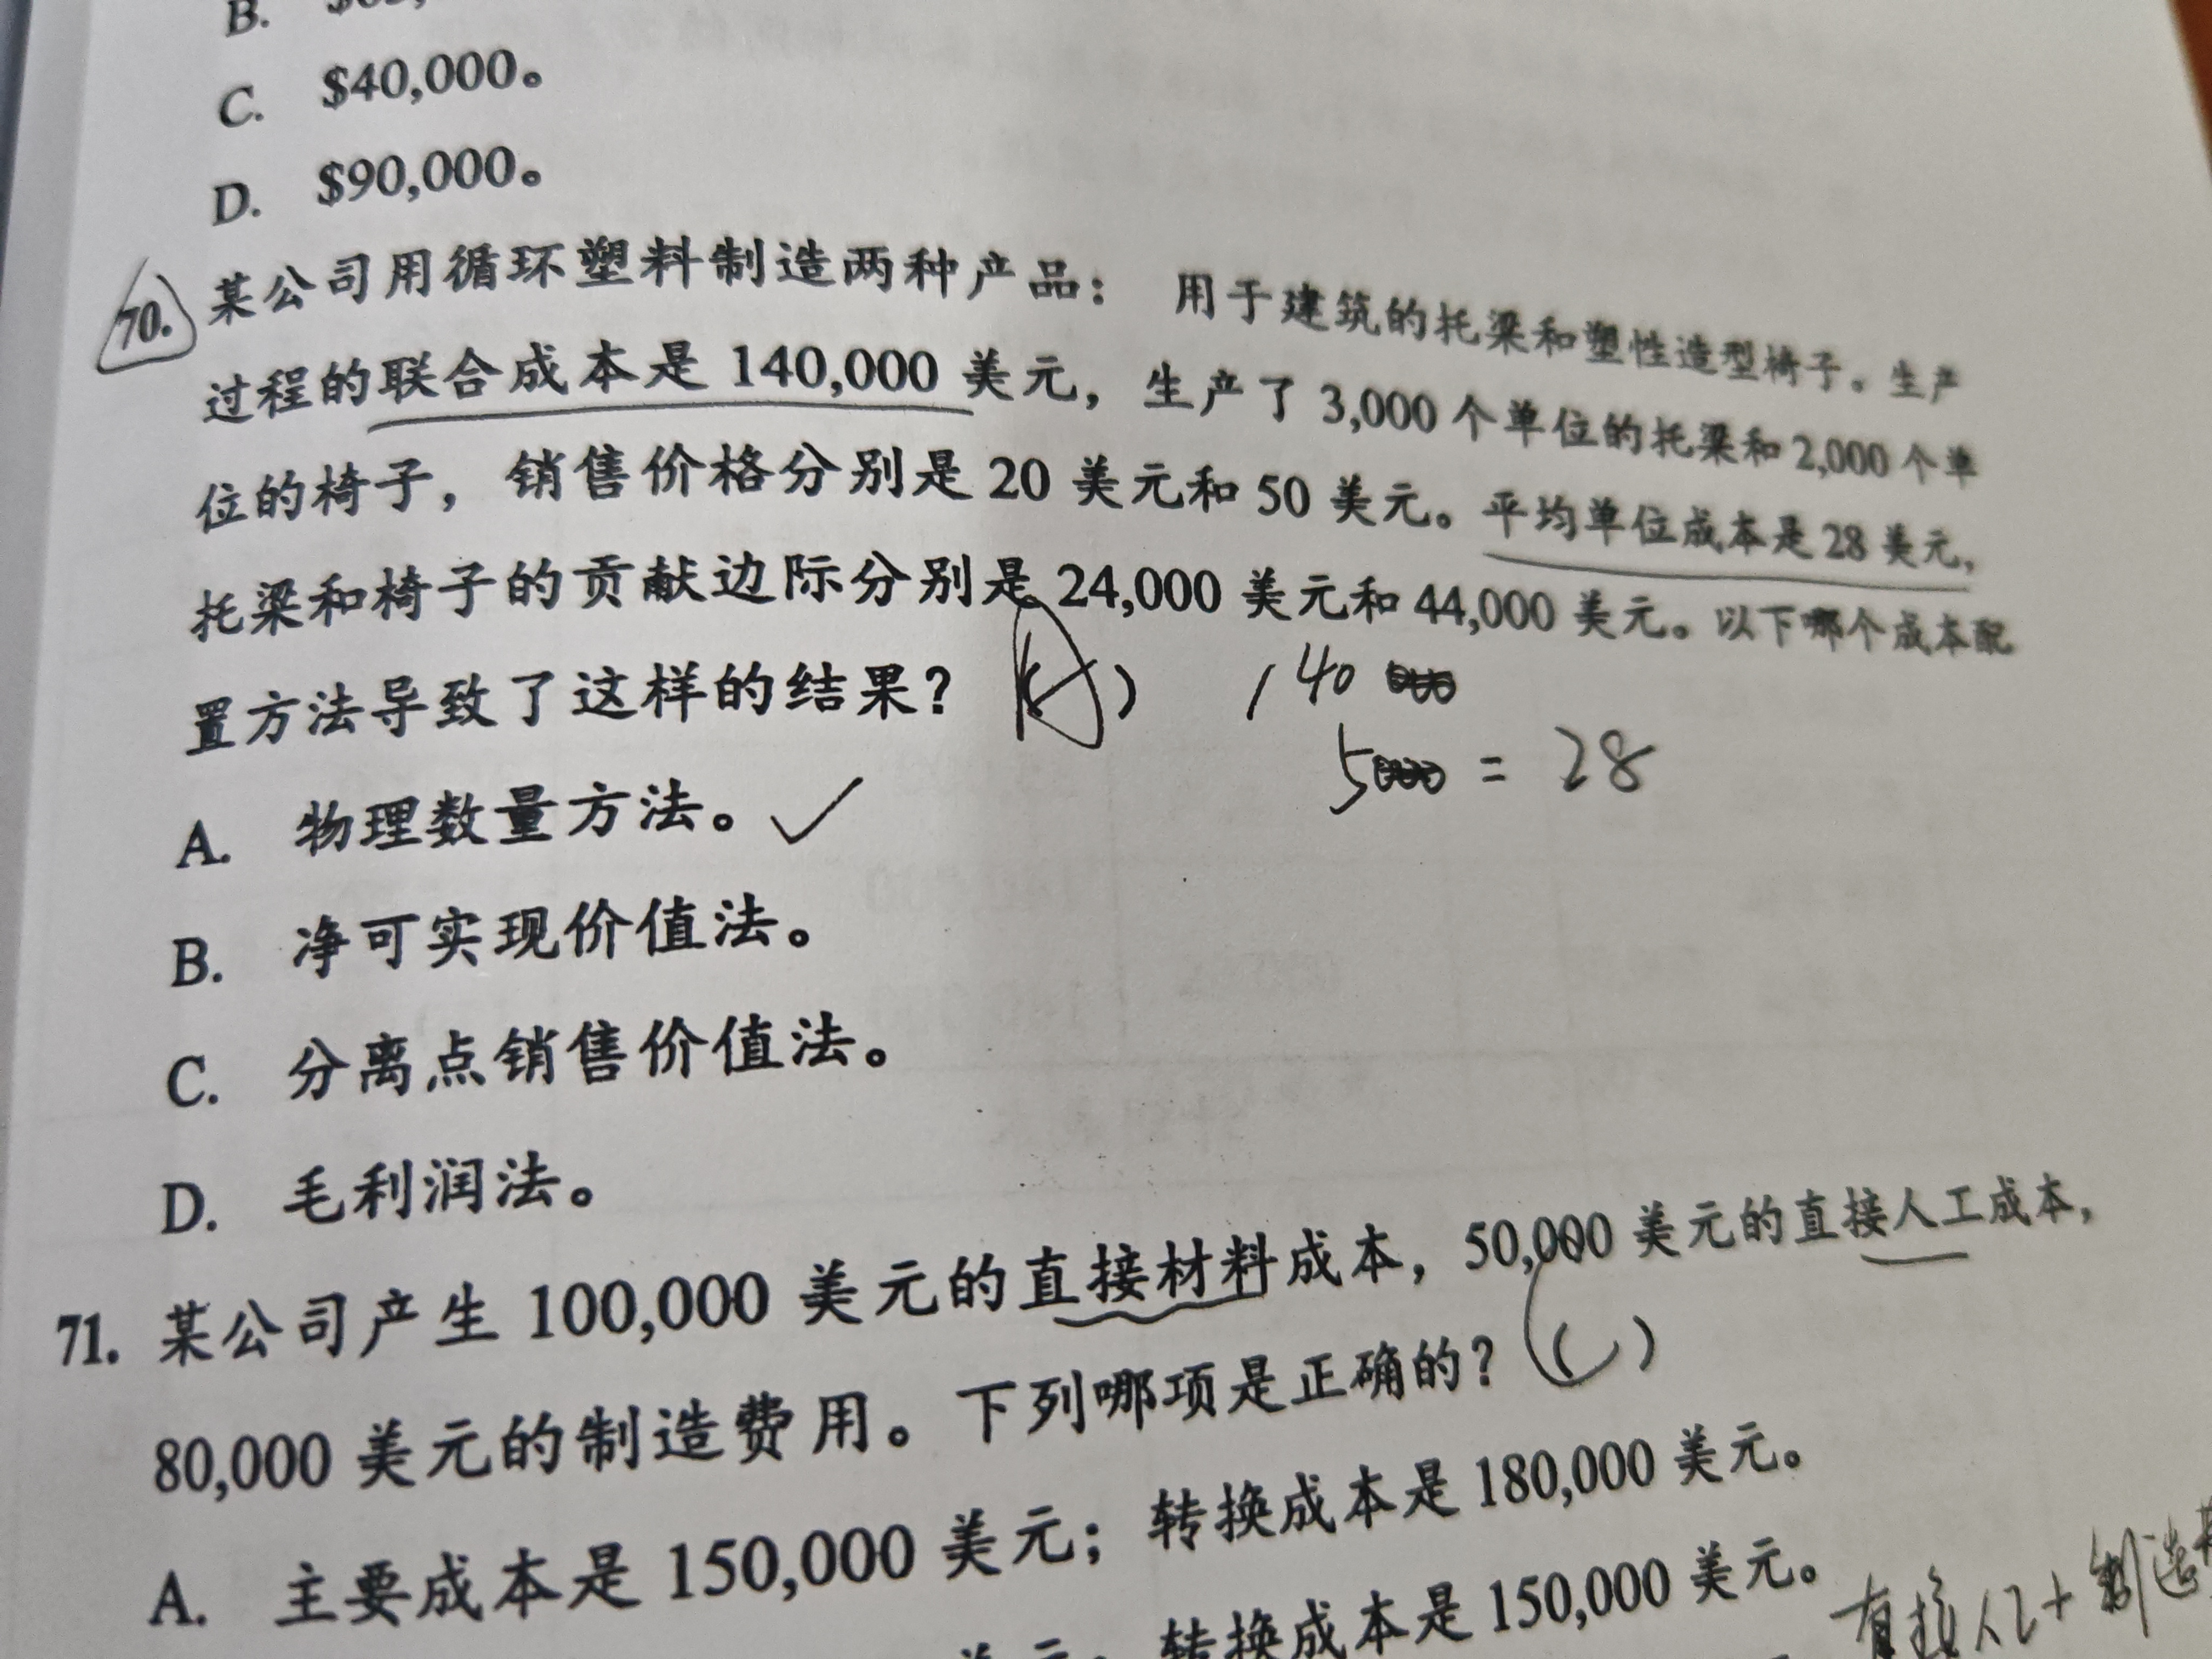 B.
C. $40,000。
D. $90,000。
70. 某公司用循环塑料制造两种产品： 用于建筑的托梁和塑性造型椅子。生产
过程的联合成本是 140,000 美元，生产了 3,000 个单位的托梁和 2,000 个单
位的椅子，销售价格分别是 20 美元和 50 美元。平均单位成本是 28 美元，
托梁和椅子的贡献边际分别是 24,000 美元和 44,000 美元。以下哪个成本配
置方法导致了这样的结果？
140
5 = 28
A. 物理数量方法。✓
B. 净可实现价值法。
C. 分离点销售价值法。
D. 毛利润法。
71. 某公司产生 100,000 美元的直接材料成本，50,000 美元的直接人工成本，
80,000 美元的制造费用。下列哪项是正确的？
A. 主要成本是 150,000 美元；转换成本是 180,000 美元。
转换成本是 150,000 美元。
直接人工+制造